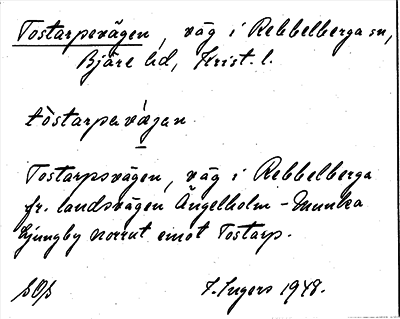 Tostarpsvägen, väg i Rebbelberga sn,
Bjäre hd, Krist. l.
tòstarpsvä́gan
Tostarpsvägen, väg i Rebbelberga
fr. landsvägen Ängelholm - Munka
Ljungby norrut emot Tostarp.
1948.